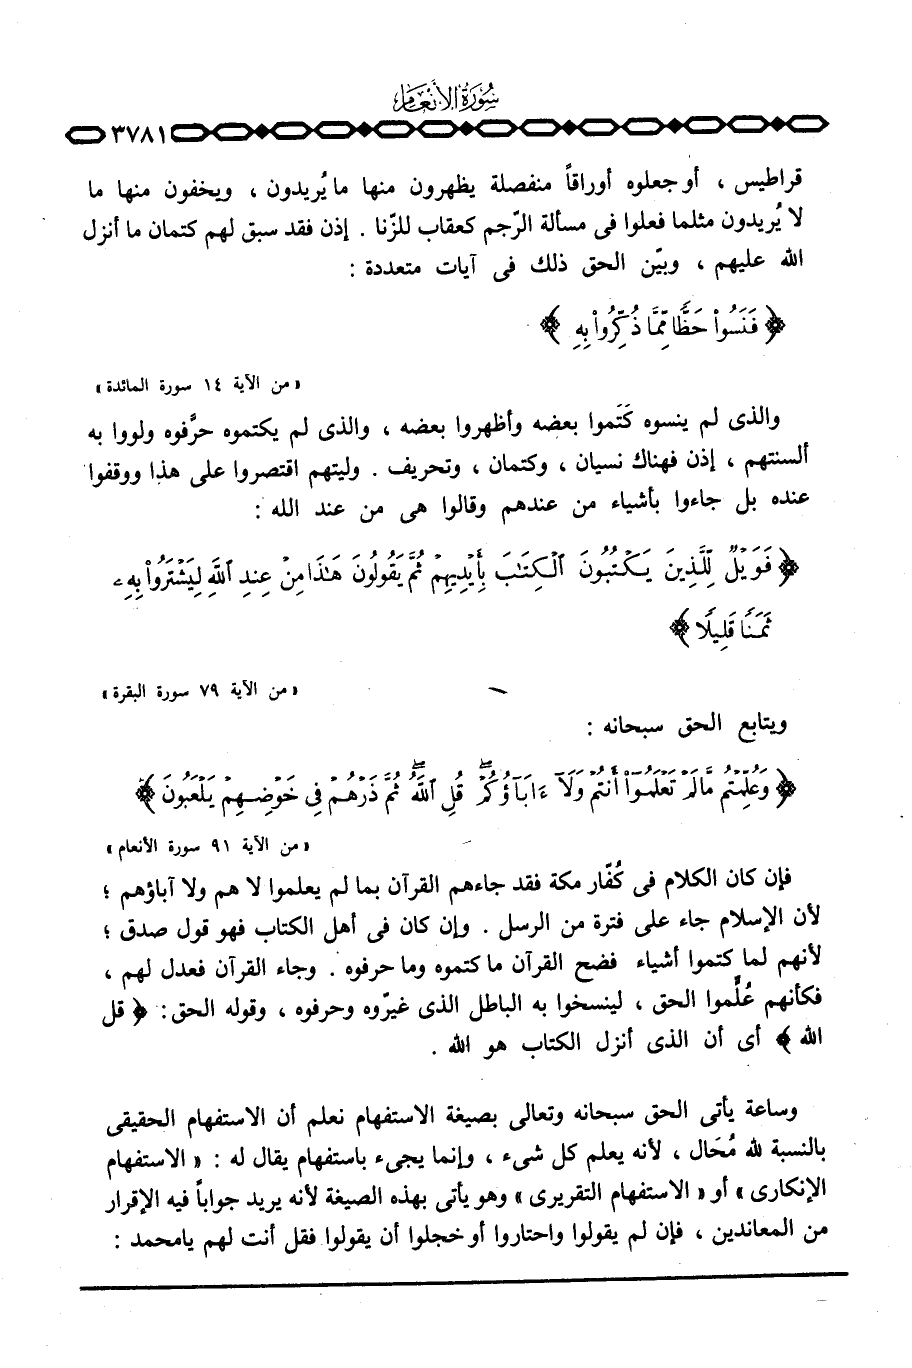 سورة الأنعام
٣٧٨١
قراطيس ، أو جعلوه أوراقاً منفصلة يظهرون منها ما يُريدون ، ويخفون منها ما
لا يُريدون مثلما فعلوا فى مسألة الرّجم كعقاب للزّنا . إذن فقد سبق لهم كتمان ما أنزل
الله عليهم ، وبيّن الحق ذلك فى آيات متعددة :
﴿ فَنَسُوا۟ حَظًّا مِّمَّا ذُكِّرُوا۟ بِهِ ﴾
« من الآية ١٤ سورة المائدة »
والذى لم ينسوه كَتَموا بعضه وأظهروا بعضه ، والذى لم يكتموه حرَّفوه ولووا به
ألسنتهم ، إذن فهناك نسيان ، وكتمان ، وتحريف . وليتهم اقتصروا على هذا ووقفوا
عنده بل جاءوا بأشياء من عندهم وقالوا هى من عند الله :
﴿ فَوَيْلٌ لِّلَّذِينَ يَكْتُبُونَ ٱلْكِتَٰبَ بِأَيْدِيهِمْ ثُمَّ يَقُولُونَ هَٰذَا مِنْ عِندِ ٱللَّهِ لِيَشْتَرُوا۟ بِهِۦ
ثَمَنًا قَلِيلًا ﴾
« من الآية ٧٩ سورة البقرة »
ويتابع الحق سبحانه :
﴿ وَعُلِّمْتُم مَّا لَمْ تَعْلَمُوٓا۟ أَنتُمْ وَلَآ ءَابَآؤُكُمْ ۖ قُلِ ٱللَّهُ ۖ ثُمَّ ذَرْهُمْ فِى خَوْضِهِمْ يَلْعَبُونَ ﴾
« من الآية ٩١ سورة الأنعام »
فإن كان الكلام فى كُفّار مكة فقد جاءهم القرآن بما لم يعلموا لا هم ولا آباؤهم ؛
لأن الإسلام جاء على فترة من الرسل . وإن كان فى أهل الكتاب فهو قول صدق ؛
لأنهم لما كتموا أشياء فضح القرآن ما كتموه وما حرفوه . وجاء القرآن فعدل لهم ،
فكأنهم عُلِّموا الحق ، لينسخوا به الباطل الذى غيّروه وحرفوه ، وقوله الحق : ﴿ قل
الله ﴾ أى أن الذى أنزل الكتاب هو الله .
وساعة يأتى الحق سبحانه وتعالى بصيغة الاستفهام نعلم أن الاستفهام الحقيقى
بالنسبة لله مُحَال ، لأنه يعلم كل شىء ، وإنما يجىء باستفهام يقال له : « الاستفهام
الإنكارى » أو « الاستفهام التقريرى » وهو يأتى بهذه الصيغة لأنه يريد جواباً فيه الإقرار
من المعاندين ، فإن لم يقولوا واحتاروا أو خجلوا أن يقولوا فقل أنت لهم يا محمد :